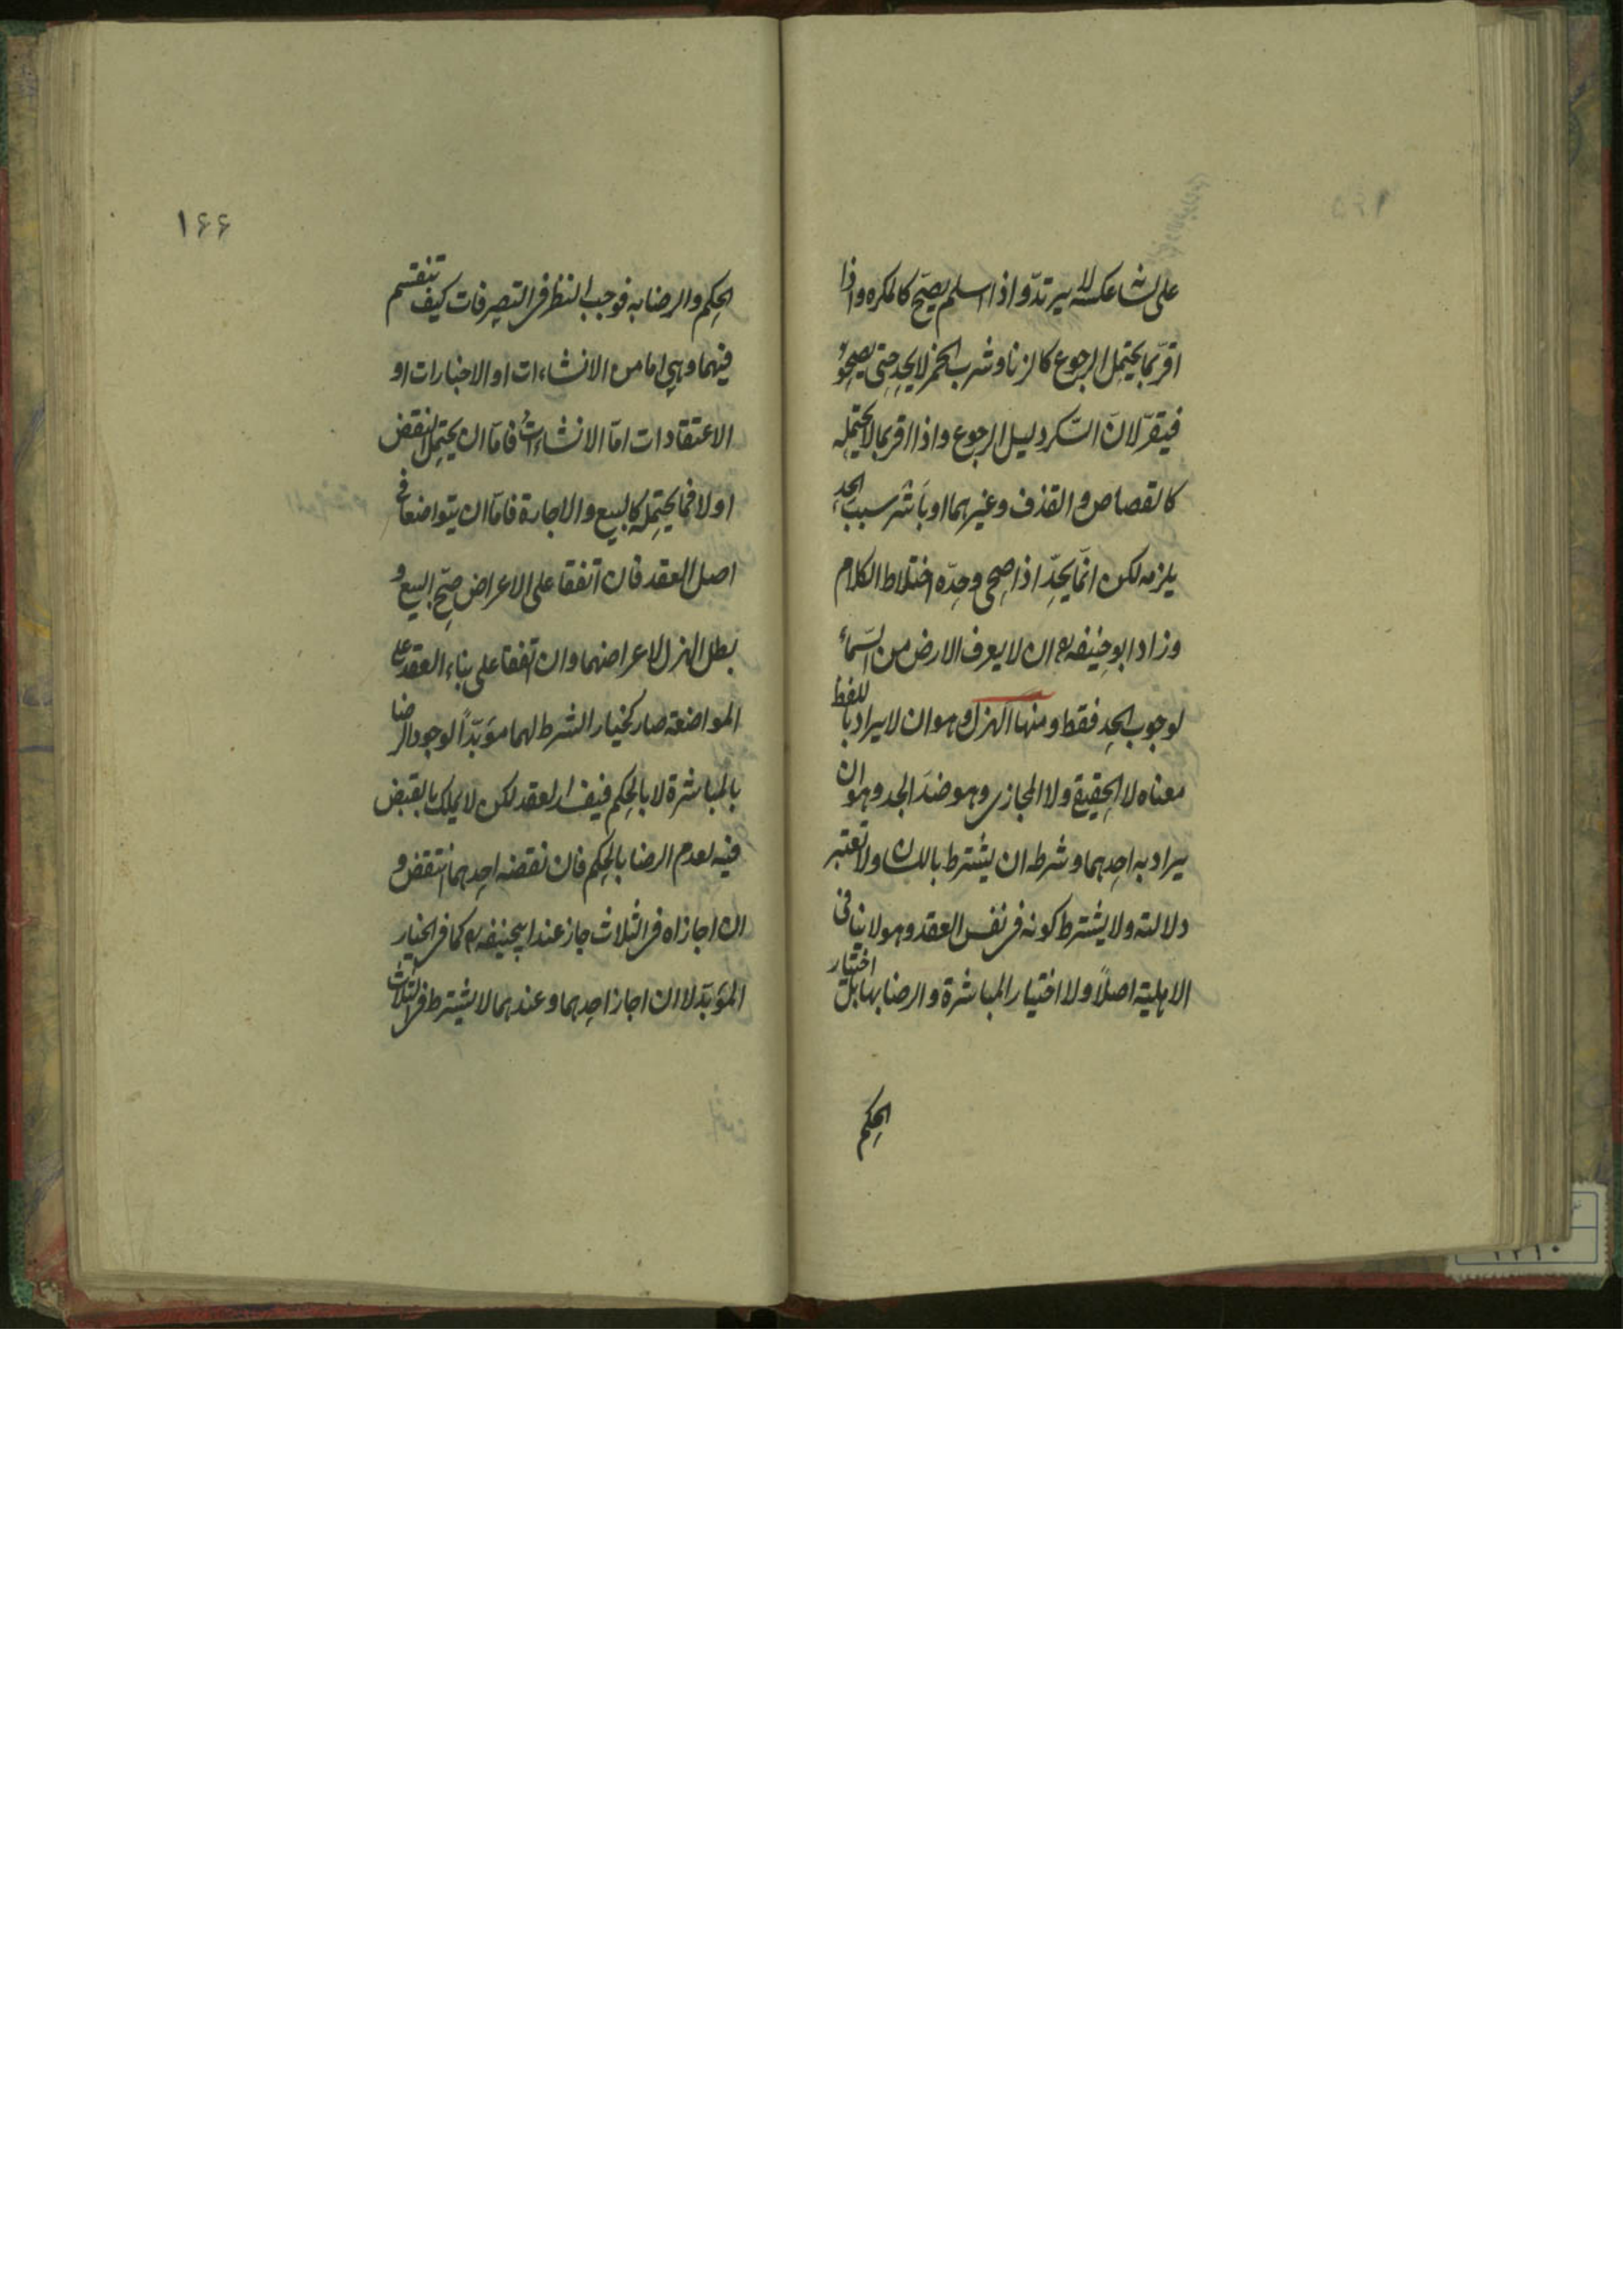 على لسانه عكسه لا يرتد واذا اسلم يصح كالمكره واذا
اقر بما يحتمل الرجوع كالزنا وشرب الخمر لا يحد حتى يصحو
فيقر لان السكر دليل الرجوع واذا اقر بما لا يحتمله
كالقصاص والقذف وغيرهما او باشر سبب الحد
يلزمه لكن انما يحد اذا صحى وحده اختلاط الكلام
وزاد ابو حنيفه رح ان لا يعرف الارض من السماء
لوجوب الحد فقط ومنها الهزل وهو ان لا يراد باللفظ
معناه لا الحقيقي ولا المجازى وهو ضد الجد وهو ان
يراد به احدهما وشرطه ان يشترط باللسان ولا تعتبر
دلالته ولا يشترط كونه فى نفس العقد وهو لا ينافى
الاهلية اصلاً ولا اختيار المباشرة والرضا بها بل اختيار
الحكم
١۶۶
الحكم والرضا به فوجب النظر فى التصرفات كيف تنقسم
فيهما وهى اما من الانشاءات او الاخبارات او
الاعتقادات اما الانشاءات فاما ان يحتمل النقض
او لا فما يحتمله كالبيع والاجارة فاما ان يتواضعا فى
اصل العقد فان اتفقا على الاعراض صح البيع و
بطل الهزل لاعراضهما وان اتفقا على بناء العقد على
المواضعة صار كخيار الشرط لهما مؤبداً لوجود الرضا
بالمباشرة لا بالحكم فيفسد العقد لكن لا يملك بالقبض
فيه لعدم الرضا بالحكم فان نقضه احدهما انتقض و
ان اجازاه فى الثلاث جاز عند ابيحنيفه رح كما فى الخيار
المؤبد لا ان اجاز احدهما وعندهما لا يشترط فى الثلاث